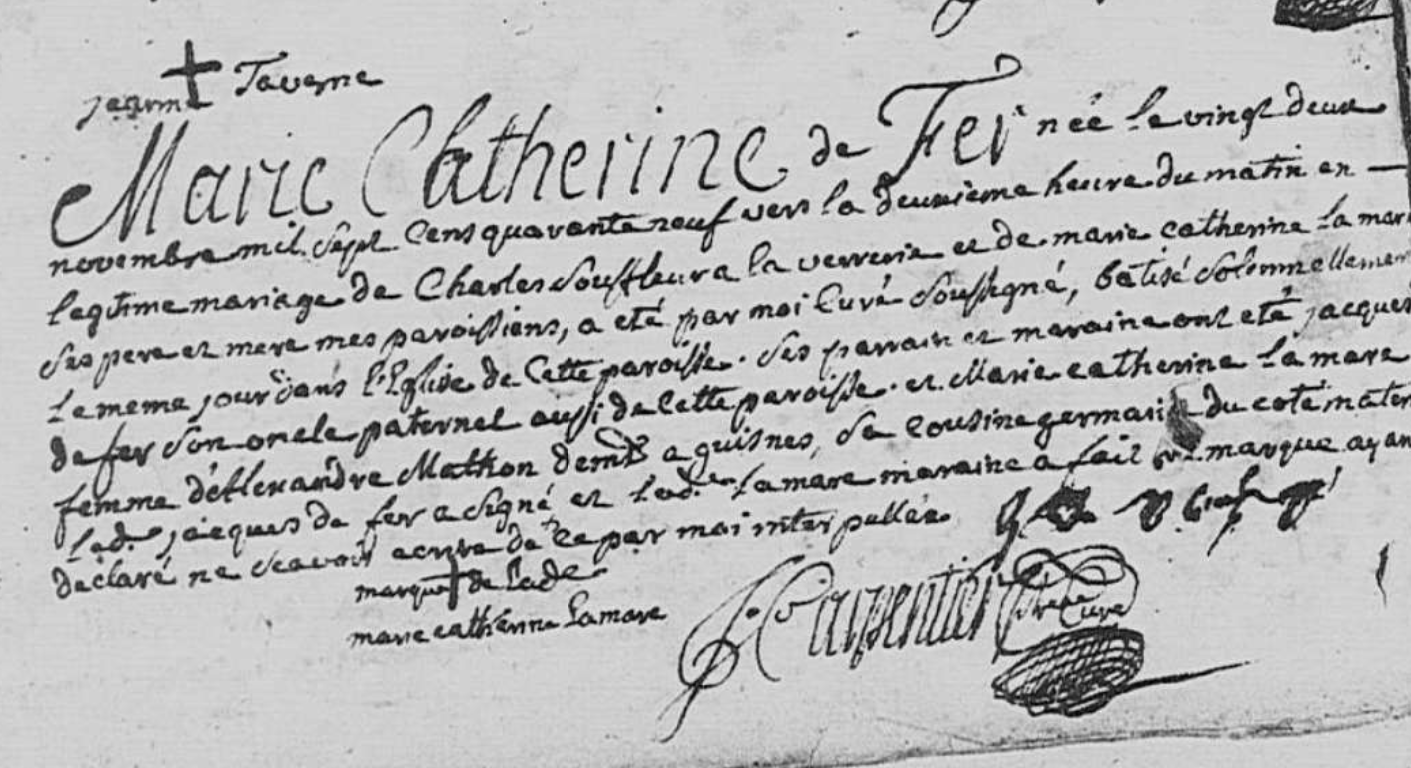 jeanne Taverne
Marie Catherine de Fer née le vingt deux
novembre mil sept Cens quarante neuf vers la deuxieme heure du matin en
legitime mariage de Charles Souffleur a la verrerie et de marie catherine la mar
Ses pere et mere mes paroissiens, a eté par moi Curé Soussigné, batisé Solemnellemen
le meme jour dans l'Eglise de Cette paroisse. Ses parrain et maraine ont eté jacques
de fer Son oncle paternel aussi de Cette paroisse. et Marie catherine la mare
femme d'Alexandre Mathon demt a guisnes, Sa Cousine germaine du coté mater
Led. jacques de fer a Signé et lad. lamare maraine a fait sa marque ayan
declaré ne scavoir ecrire de ce par moi interpellée
marque de lade
marie catherine Lamare
Carpentier Pretre Curé